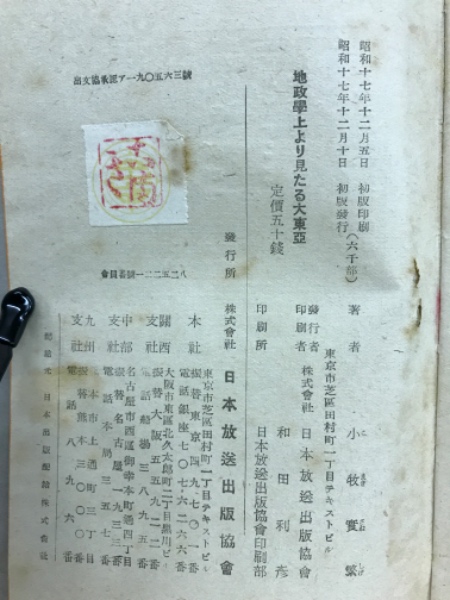 昭和十七年十二月五日 初版印刷
昭和十七年十二月十日 初版發行(六千部)
地政學上より見たる大東亞
定價五十錢
出文協承認ア一九〇五六三號
著者 小牧實繁
東京市芝區田村町一丁目テキストビル
發行者 株式會社 日本放送出版協會
印刷者 和田利彦
印刷所 日本放送出版協會印刷部
發行所 株式會社 日本放送出版協會
會員番號一二二五二八
本社 東京市芝區田村町一丁目テキストビル
振替東京四九七〇一番
電話銀座七〇七六二六六番
關西支社 大阪市東區北久太郎町二丁目
中部支社 名古屋市西區御幸本町通四丁目
振替名古屋一九三三番
電話本局三五七一番
九州支社 本市上通町三丁目
振替熊本三〇〇〇番
電話八九六番
配給元 日本出版配給株式會社